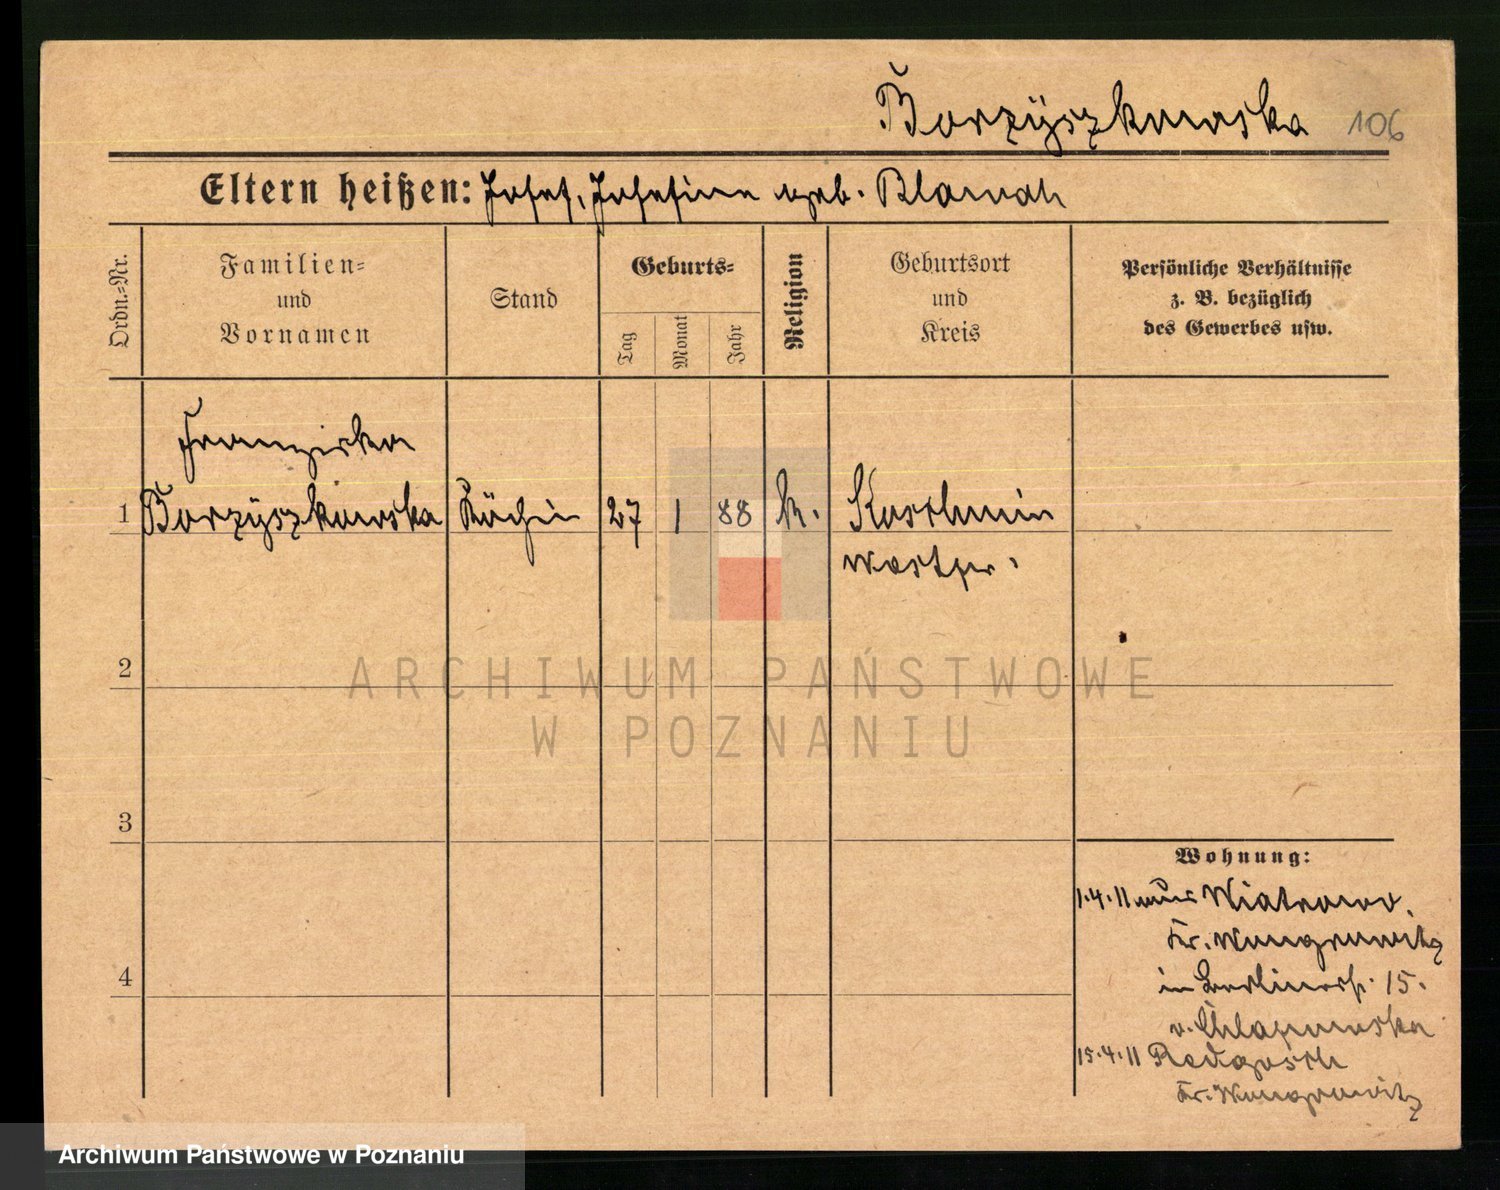 Borzÿszkowska 106
Eltern heißen: Josef, Josefine geb.
Ordn.-Nr.
Familien- und Vornamen
Stand
Geburts-
Tag
Monat
Jahr
Religion
Geburtsort und Kreis
Persönliche Verhältnisse
z. B. bezüglich
des Gewerbes usw.
Franziska
1 Borzÿszkowska Köchin 27 1 88 k.
Westpr.
2
ARCHIWUM PAŃSTWOWE
W POZNANIU
3
Wohnung:
1.4.11 aus Wiatrowo.
Kr. Wongrowitz
in Berlinerstr. 15.
v. Chlapowska
15.4.11
Kr. Wongrowitz
4
Archiwum Państwowe w Poznaniu